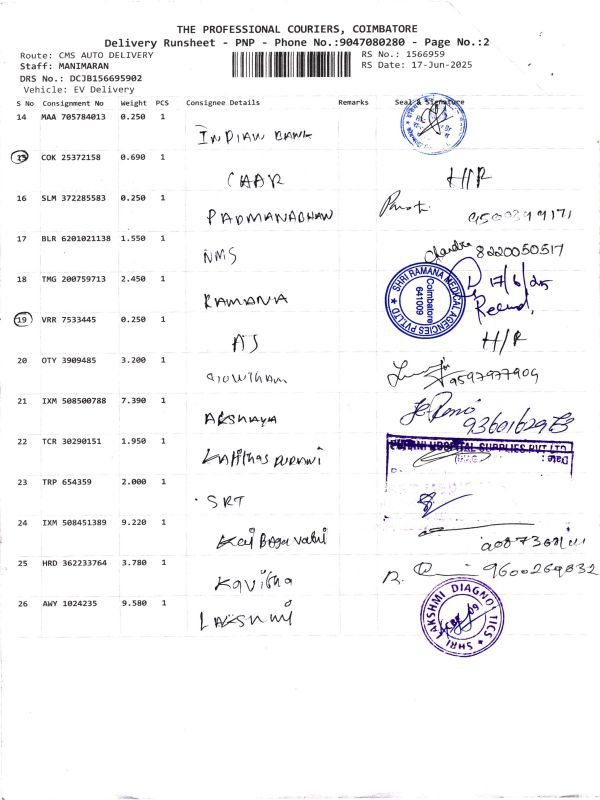 THE PROFESSIONAL COURIERS, COIMBATORE
Delivery Runsheet - PNP - Phone No.:9047080280 - Page No.:2
Route: CMS AUTO DELIVERY
RS No.: 1566959
Staff: MANIMARAN
RS Date: 17-Jun-2025
DRS No.: DCJB156695902
Vehicle: EV Delivery
S No Consignment No Weight PCS Consignee Details Remarks Seal & Signature
14 MAA 705784013 0.250 1
INDIAN BANK
15 COK 25372158 0.690 1
H/R
16 SLM 372285583 0.250 1
PADMANABHAN
17 BLR 6201021138 1.550 1
NMS
8220050517
18 TMG 200759713 2.450 1
RAMANA
SHRI RAMANA MEDICAL AGENCIES PVT LTD
Coimbatore
641009
17/6/25
Received,
19 VRR 7533445 0.250 1
AS
H/R
20 OTY 3909485 3.200 1
GOWTHAM
9597977909
21 IXM 508500788 7.390 1
AKSHAYA
22 TCR 30290151 1.950 1
HOSPITAL SUPPLIES PVT LTD
Date :
23 TRP 654359 2.000 1
SRT
24 IXM 508451389 9.220 1
25 HRD 362233764 3.780 1
Kavitha
9600269832
26 AWY 1024235 9.580 1
LAKSHMI
SHRI LAKSHMI DIAGNOSTICS